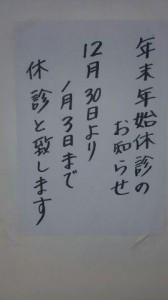 年末年始休診の
お知らせ
12月30日より
1月3日まで
休診と致します